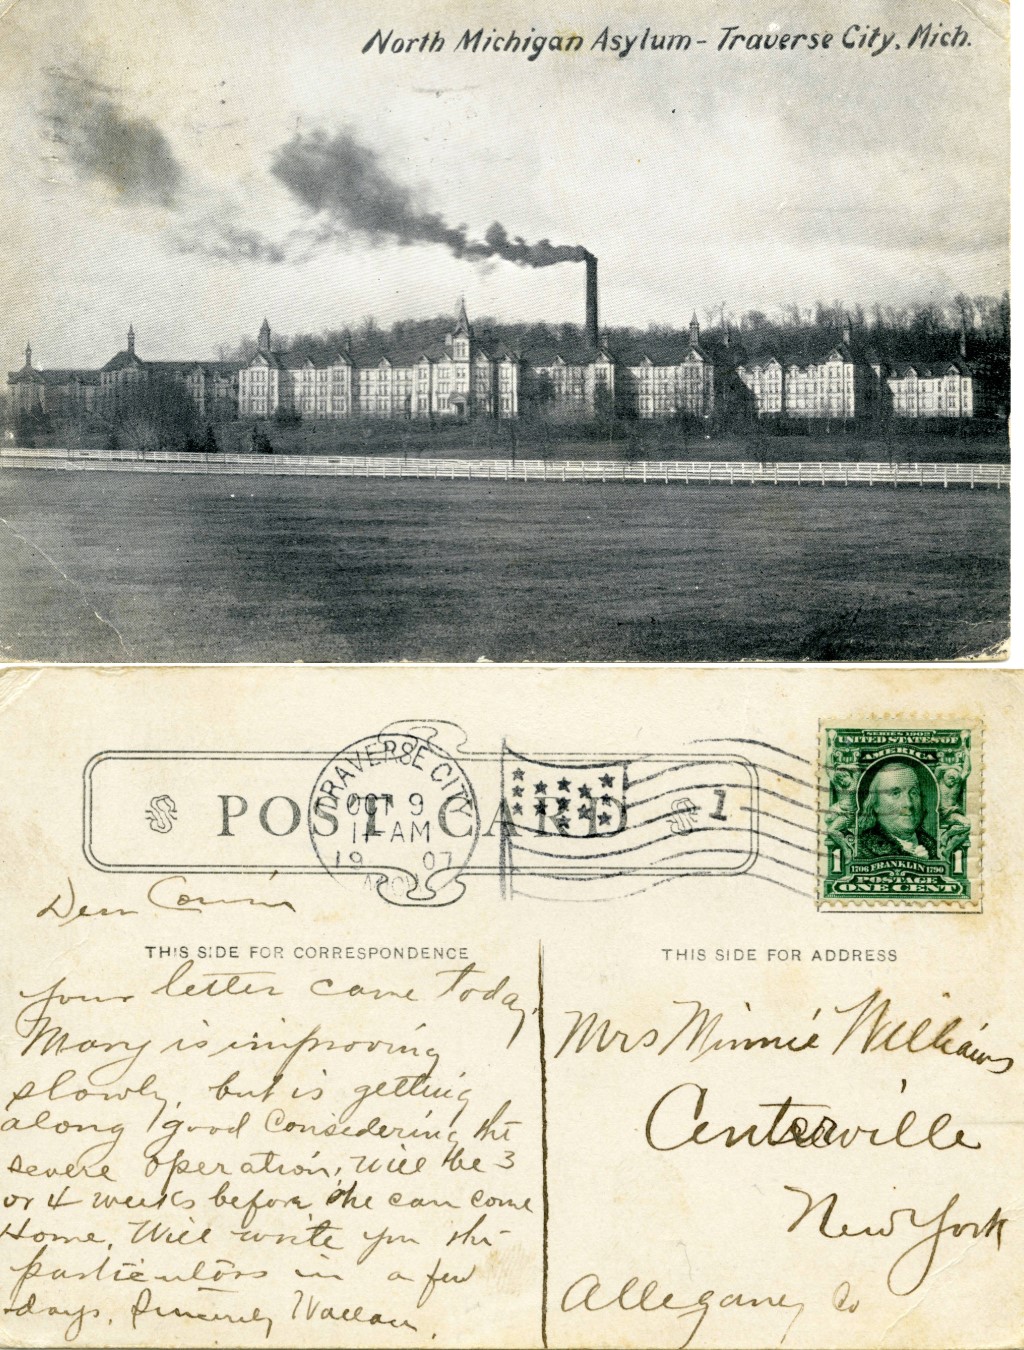 North Michigan Asylum - Traverse City, Mich.
POST CARD
TRAVERSE CITY
OCT 9
11-AM
1907
MICH.
1
SERIES 1902
UNITED STATES OF
AMERICA
1706 FRANKLIN 1790
POSTAGE
1 ONE CENT 1
Dear Cousin
THIS SIDE FOR CORRESPONDENCE
your letter came today.
Mary is improving
slowly, but is getting
along good considering the
severe operation, will be 3
or 4 weeks before she can come
Home. Will write you the
particulars in a few
days. Sincerely Wallace.
THIS SIDE FOR ADDRESS
Mrs Minnie Williams
Centerville
New York
Allegany Co